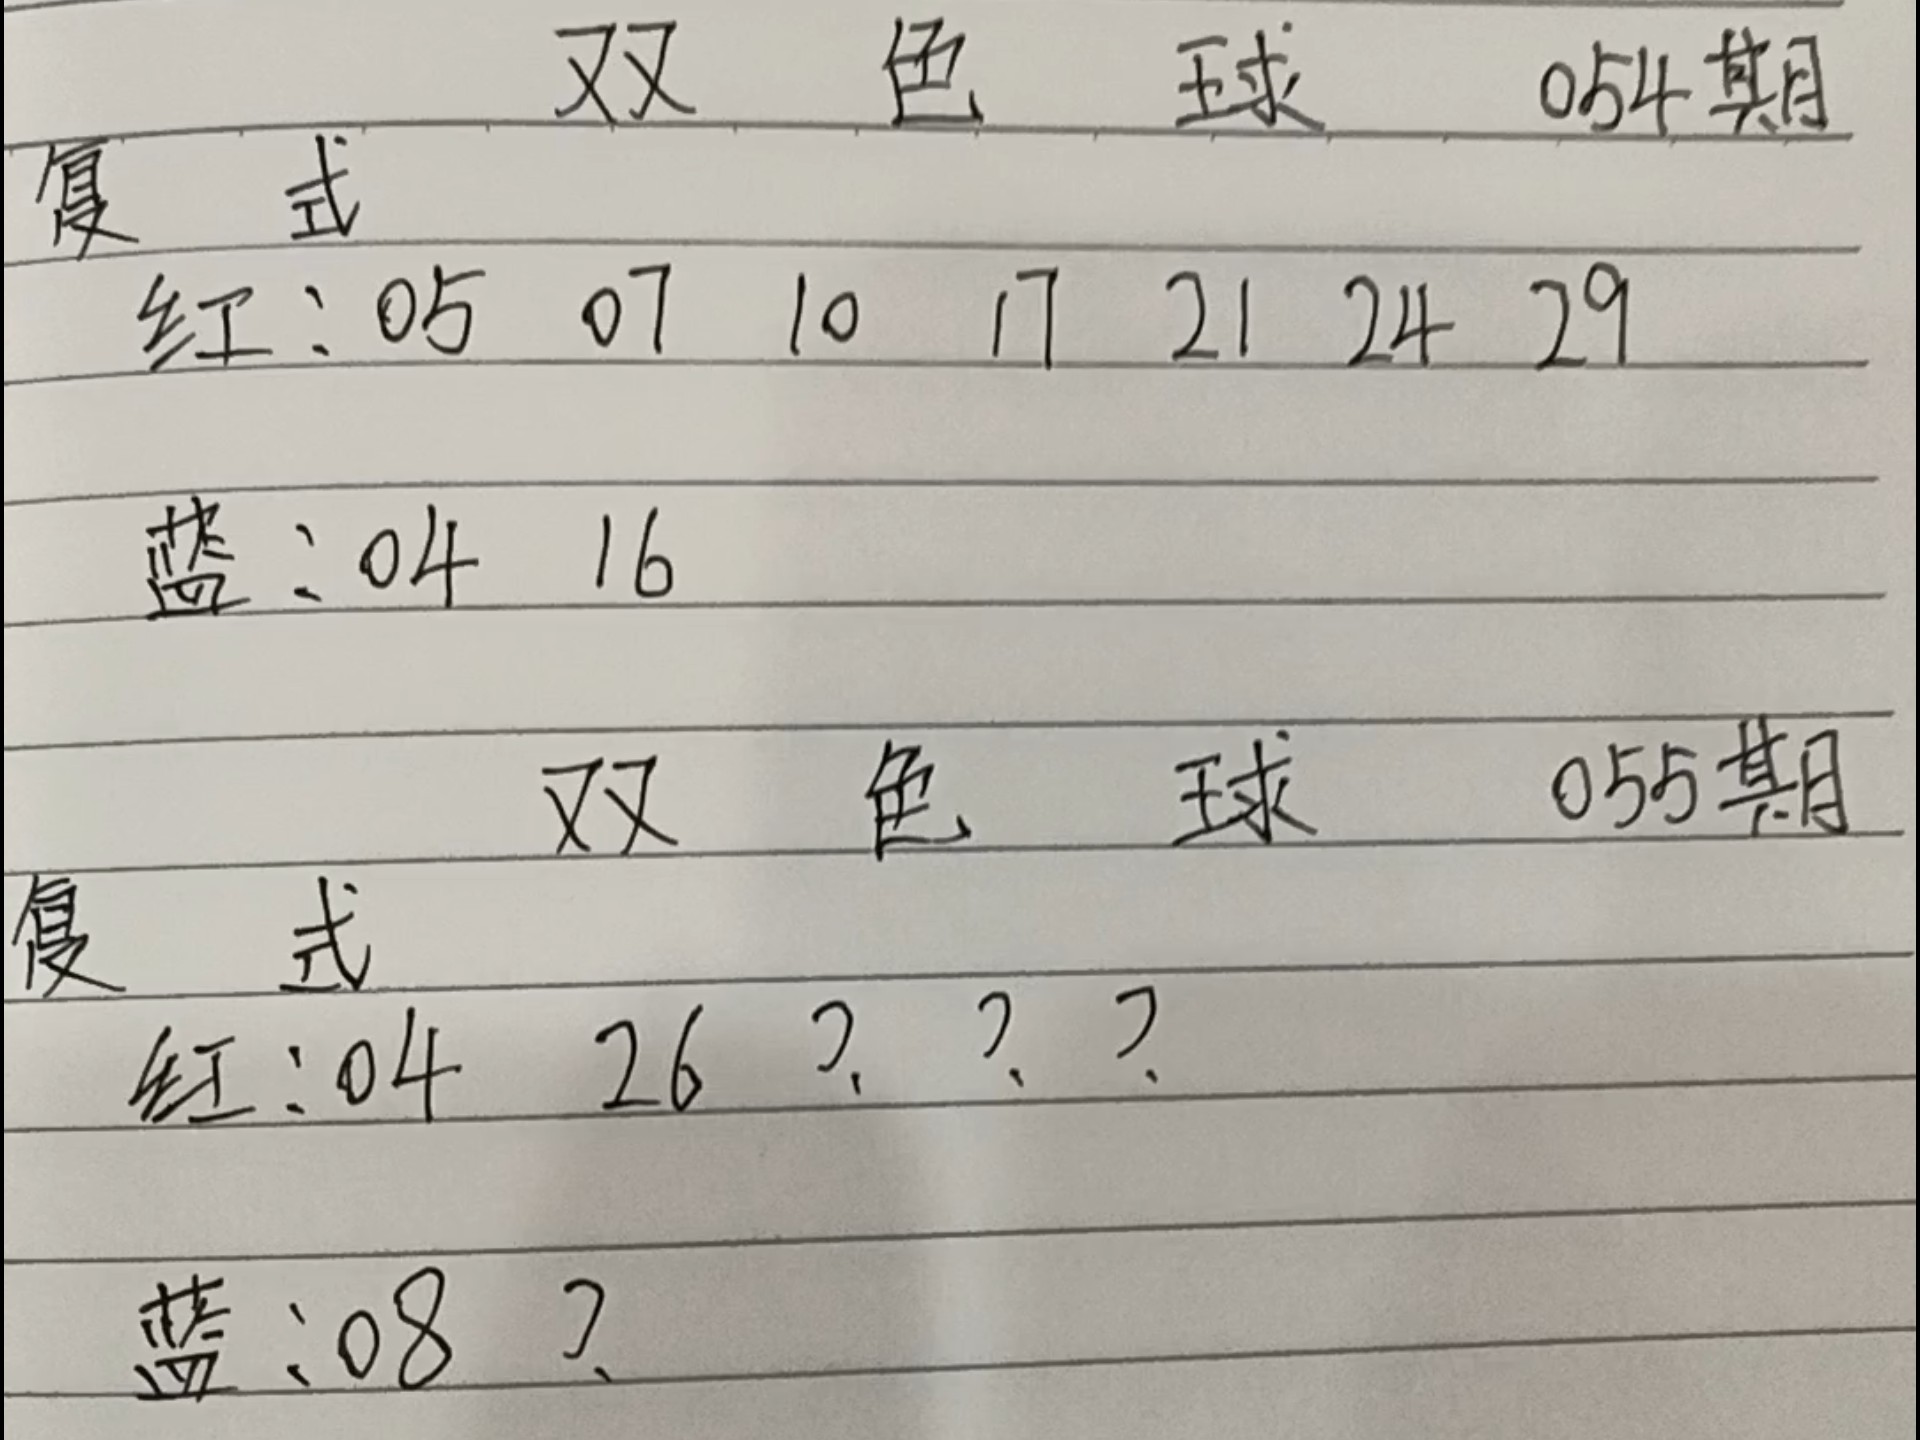 双 色 球 054期
复 式
红:05 07 10 17 21 24 29
蓝:04 16
双 色 球 055期
复 式
红:04 26 ? ? ?
蓝:08 ?